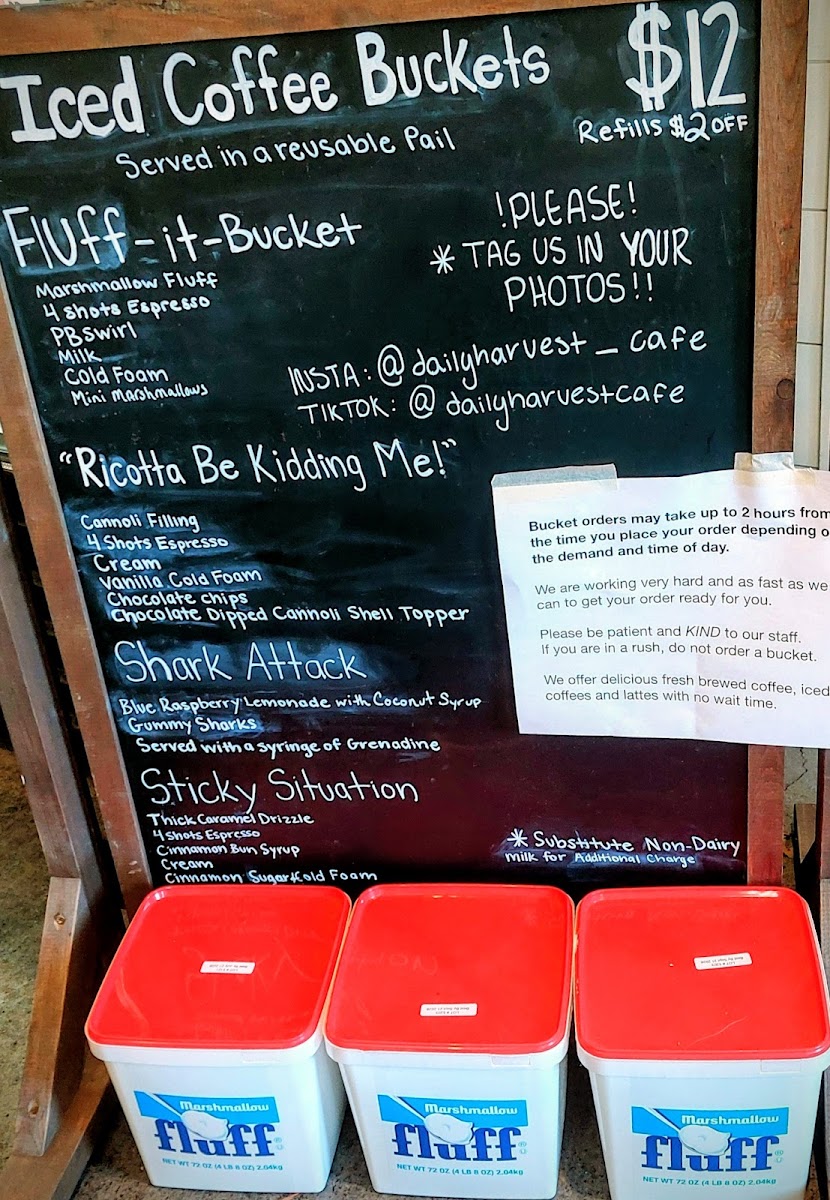 Iced Coffee Buckets $12
Served in a reusable Pail
Refills $2 OFF
Fluff-it-Bucket
Marshmallow Fluff
4 shots Espresso
PB Swirl
Milk
Cold Foam
Mini Marshmallows
!PLEASE!
* TAG US IN YOUR
PHOTOS!!
INSTA: @dailyharvest_cafe
TIKTOK: @dailyharvestcafe
"Ricotta Be Kidding Me!"
Cannoli Filling
4 Shots Espresso
Cream
Vanilla Cold Foam
Chocolate chips
Chocolate Dipped Cannoli Shell Topper
Bucket orders may take up to 2 hours from
the time you place your order depending o
the demand and time of day.
We are working very hard and as fast as we
can to get your order ready for you.
Please be patient and KIND to our staff.
If you are in a rush, do not order a bucket.
We offer delicious fresh brewed coffee, iced
coffees and lattes with no wait time.
Shark Attack
Blue Raspberry Lemonade with Coconut Syrup
Gummy Sharks
Served with a syringe of Grenadine
Sticky Situation
Thick Caramel Drizzle
4 Shots Espresso
Cinnamon Bun Syrup
Cream
Cinnamon Sugar Cold Foam
* Substitute Non-Dairy
Milk for Additional Charge
Marshmallow
fluff
NET WT 72 OZ (4 LB 8 OZ) 2.04kg
Marshmallow
fluff
NET WT 72 OZ (4 LB 8 OZ) 2.04kg
Marshmallow
fluff
NET WT 72 OZ (4 LB 8 OZ) 2.04kg